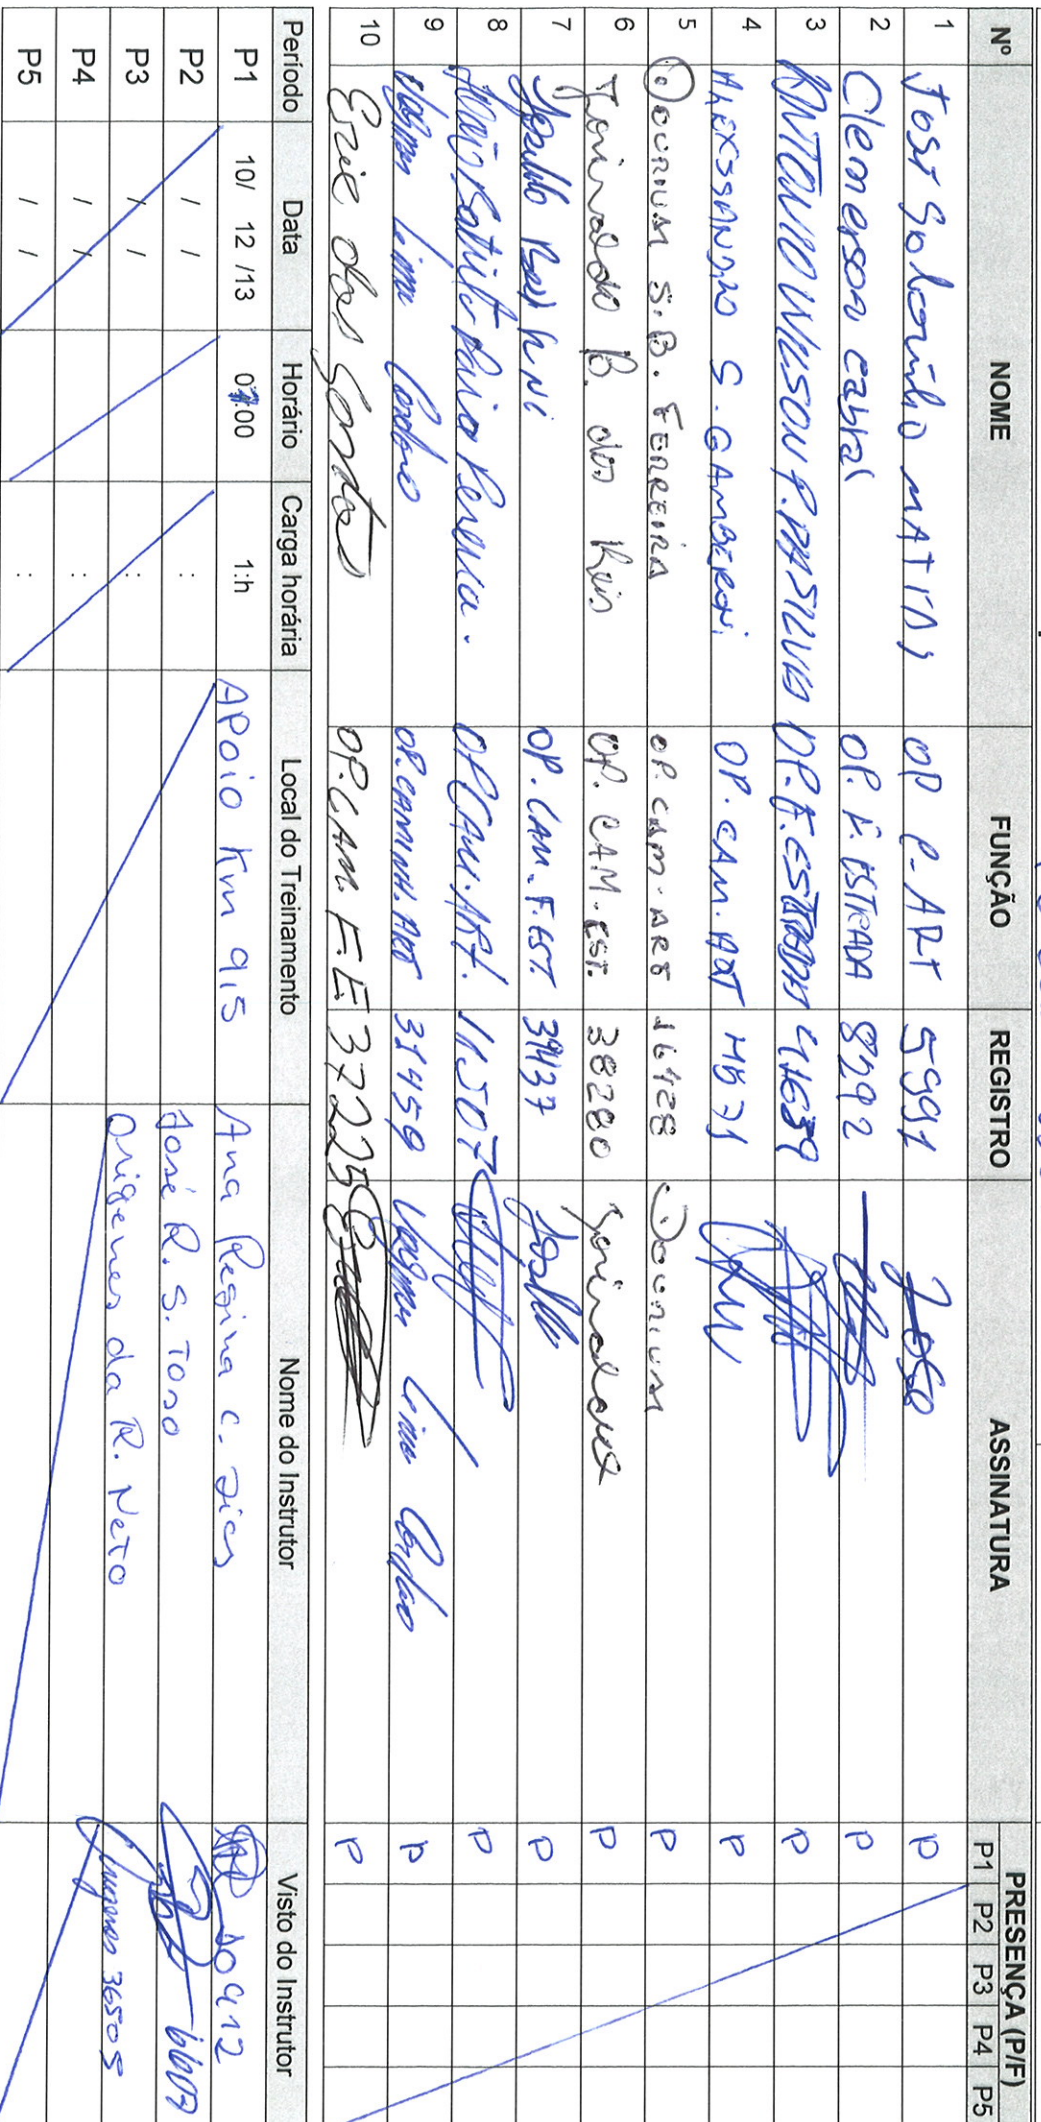 Nº NOME FUNÇÃO REGISTRO ASSINATURA PRESENÇA (P/F)
P1 P2 P3 P4 P5
1 OP C. ART 5991 José P
2 Clemerson cabral OP. F. ESTRADA 8292 P
3 ANTONIO WILSON P. DA SILVA OP. F. ESTRADA 41639 P
4 ALEXSSANDRO S. GAMBERONI OP. CAM. ART P
5 S. B. FERREIRA OP. CAM. ART 16428 P
6 Jorivaldo B. dos Reis OP. CAM. EST. 38280 P
7 OP. CAM. F. EST. 39437 P
8 João Batista Pereira. OP CAM. ART. 11.507 P
9 Vagner Lima Cardoso OP. CAMINH. ART 31459 Vagner Lima Cardoso P
10 Ezie dos Santos OP. CAM. F. E 37225 P
Período Data Horário Carga horária Local do Treinamento Nome do Instrutor Visto do Instrutor
P1 10/ 12 /13 :00 1:h APoio Km 915 Ana Regina C. Dias
P2 / / : José R. S. Toso
P3 / / : Origenes da R. Neto 36505
P4 / / :
P5 / / :